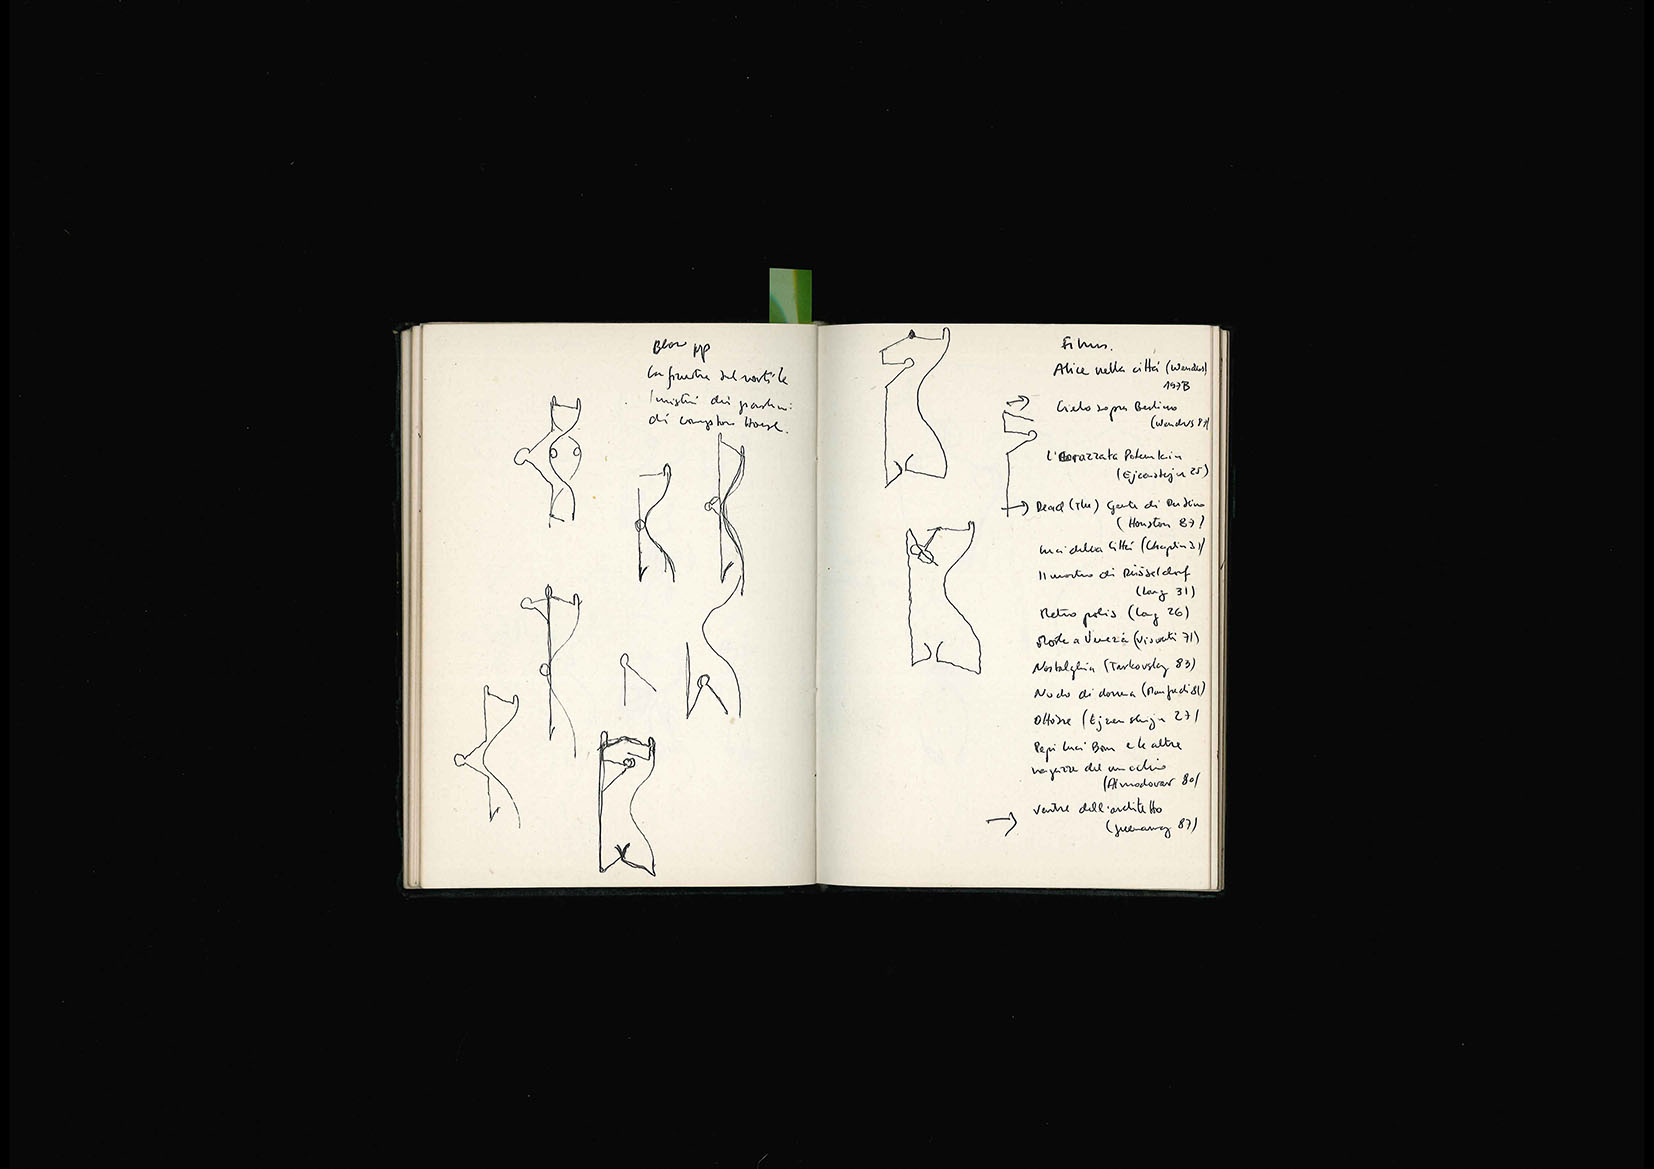 Blow up
La finestra sul cortile
I misteri dei giardini
di Compton House.
Films.
Alice nella città (Wenders)
1973
Cielo sopra Berlino
(Wenders 87)
L'corazzata Potemkin
(Ejzenstejn 25)
Dead (The) Gente di Dublino
(Houston 87)
Luci della Città (Chaplin 31)
Il mostro di Düsseldorf
(Lang 31)
Metropolis (Lang 26)
Morte a Venezia (Visconti 71)
Nostalghia (Tarkovsky 83)
Nudo di donna (Manfredi 81)
Ottobre (Ejzenstejn 27)
Pepi Luci Bom e le altre
ragazze del mucchio
(Almodovar 80)
Ventre dell'architetto
(Greenaway 87)